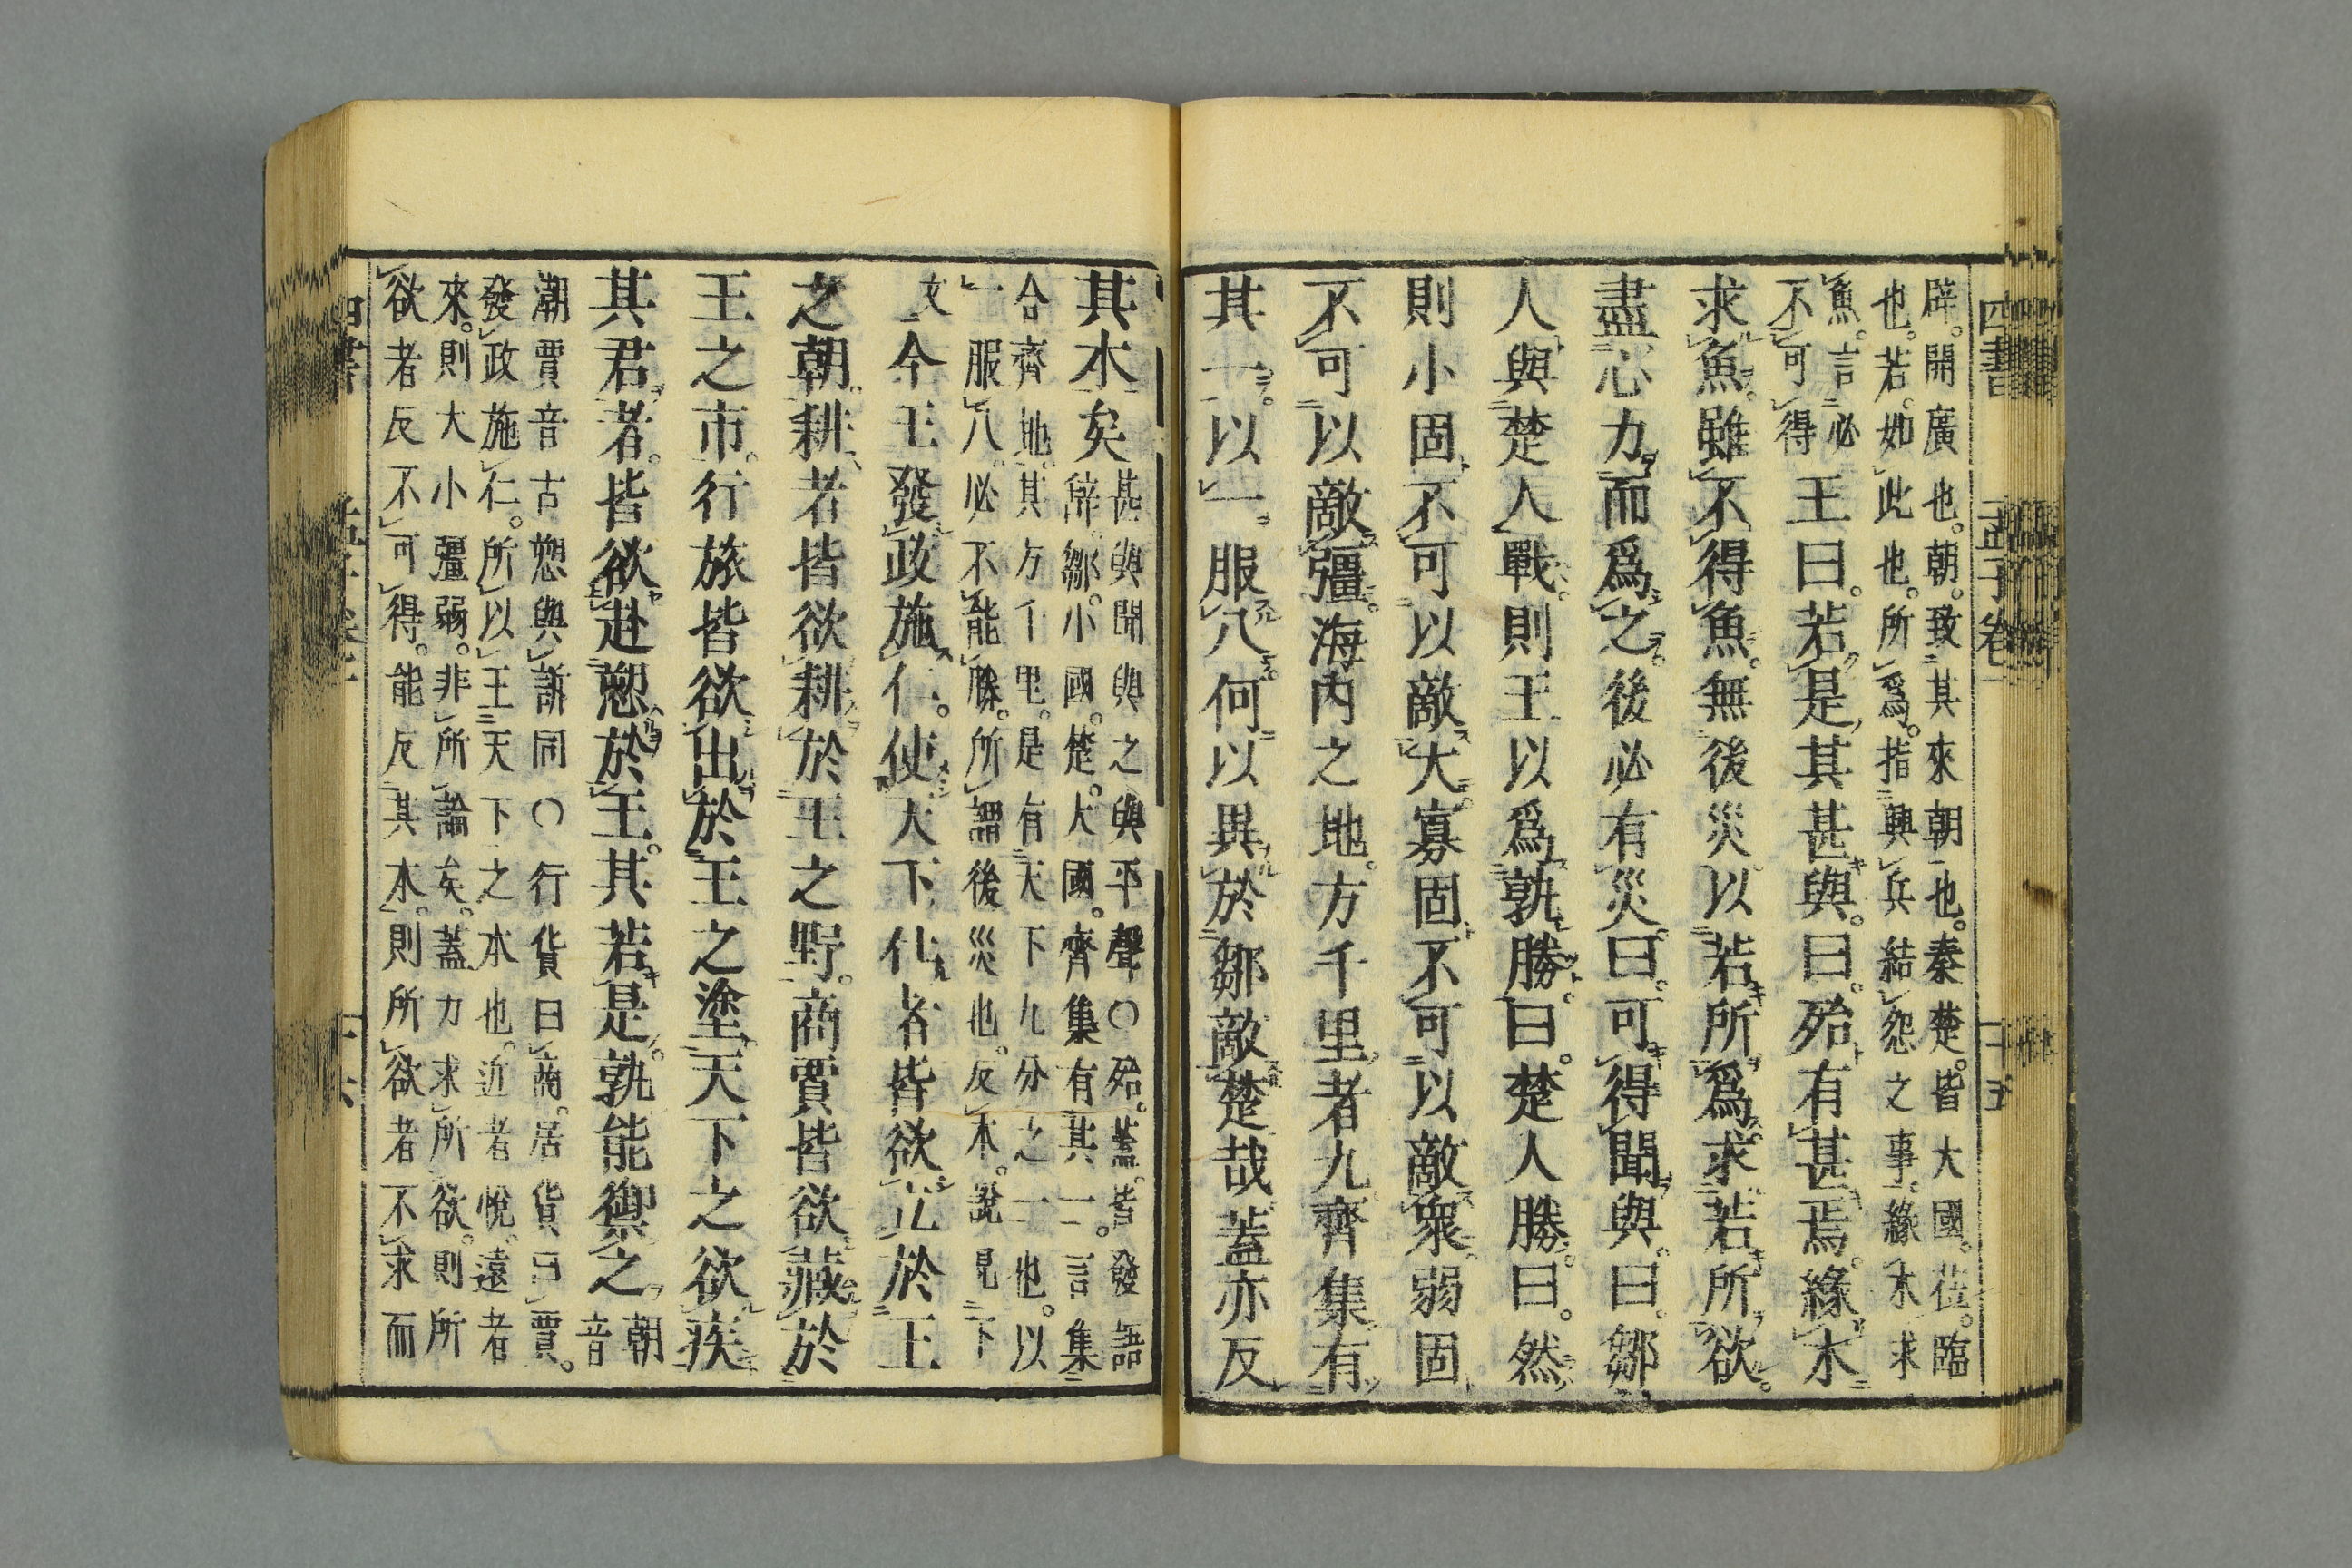 四書 孟子卷一 二十五
辟。開廣也。朝。致其來朝也。秦楚。皆大國。莅。臨
也。若。如此也。所爲。指興兵結怨之事。緣木求
魚。言必
不可得
王曰。若是其甚與。曰。殆有甚焉。緣木
求魚。雖不得魚。無後災。以若所爲。求若所欲。
盡心力而爲之。後必有災。曰。可得聞與。曰。鄒
人與楚人戰。則王以爲孰勝。曰。楚人勝。曰。然
則小固不可以敵大。寡固不可以敵衆。弱固
不可以敵彊。海內之地。方千里者九。齊集有
其一。以一。服八。何以異於鄒敵楚哉。蓋亦反
其本矣
甚與聞與之與平聲○殆。蓋。皆發語
辭。鄒。小國。楚。大國。齊集有其一。言集
合齊地。其方千里。是有天下九分之一也。以
一服八。必不能勝。所謂後災也。反本。說見下
文
今王發政施仁。使天下仕者皆欲立於王
之朝。耕者皆欲耕於王之野。商賈皆欲藏於
王之市。行旅皆欲出於王之塗。天下之欲疾
其君者。皆欲赴愬於王。其若是。孰能禦之
朝
音
潮賈音古愬與訴同○行貨曰商。居貨曰賈。
發政施仁。所以王天下之本也。近者悅。遠者
來。則大小彊弱。非所論矣。蓋力求所欲。則所
欲者反不可得。能反其本。則所欲者不求而